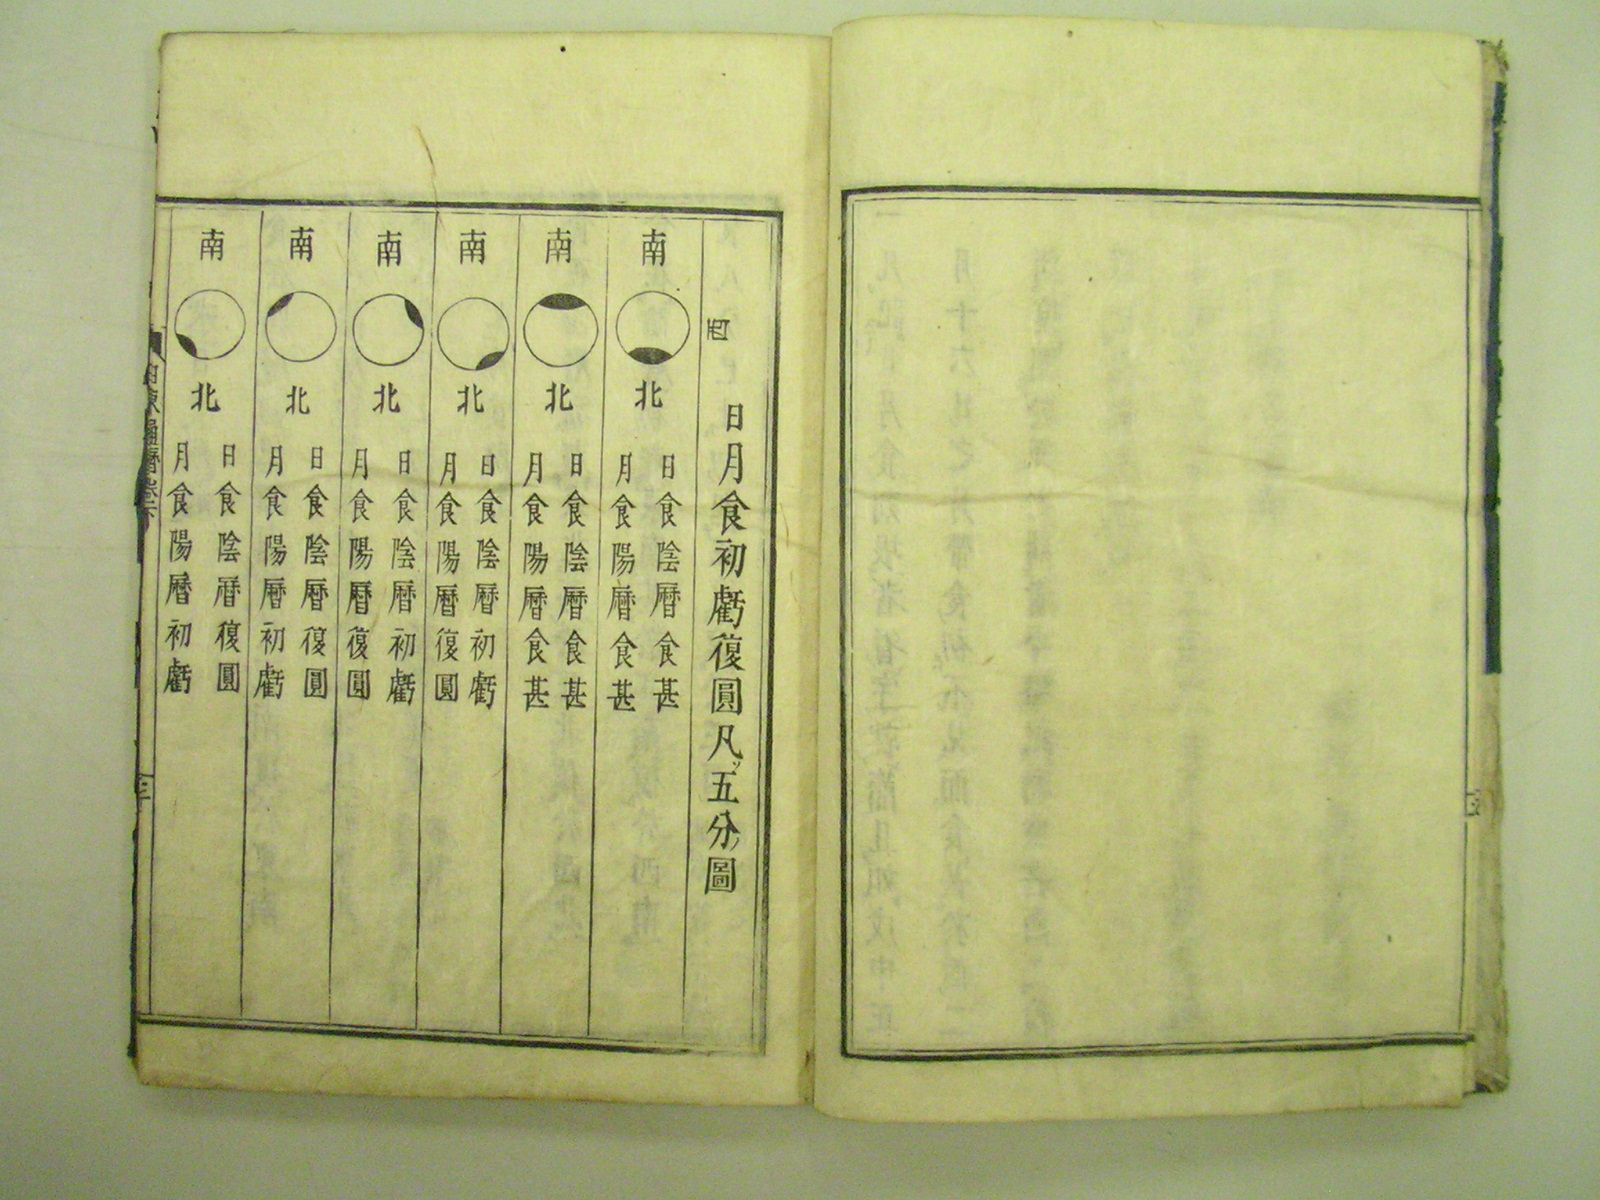 日月食初虧復圓凡ソ五分ノ圖
南
北
日食陰暦食甚
月食陽暦食甚
南
北
日食陰暦食甚
月食陽暦食甚
南
北
日食陰暦初虧
月食陽暦復圓
南
北
日食陰暦初虧
月食陽暦復圓
南
北
日食陰暦復圓
月食陽暦初虧
南
北
日食陰暦復圓
月食陽暦初虧
卷下